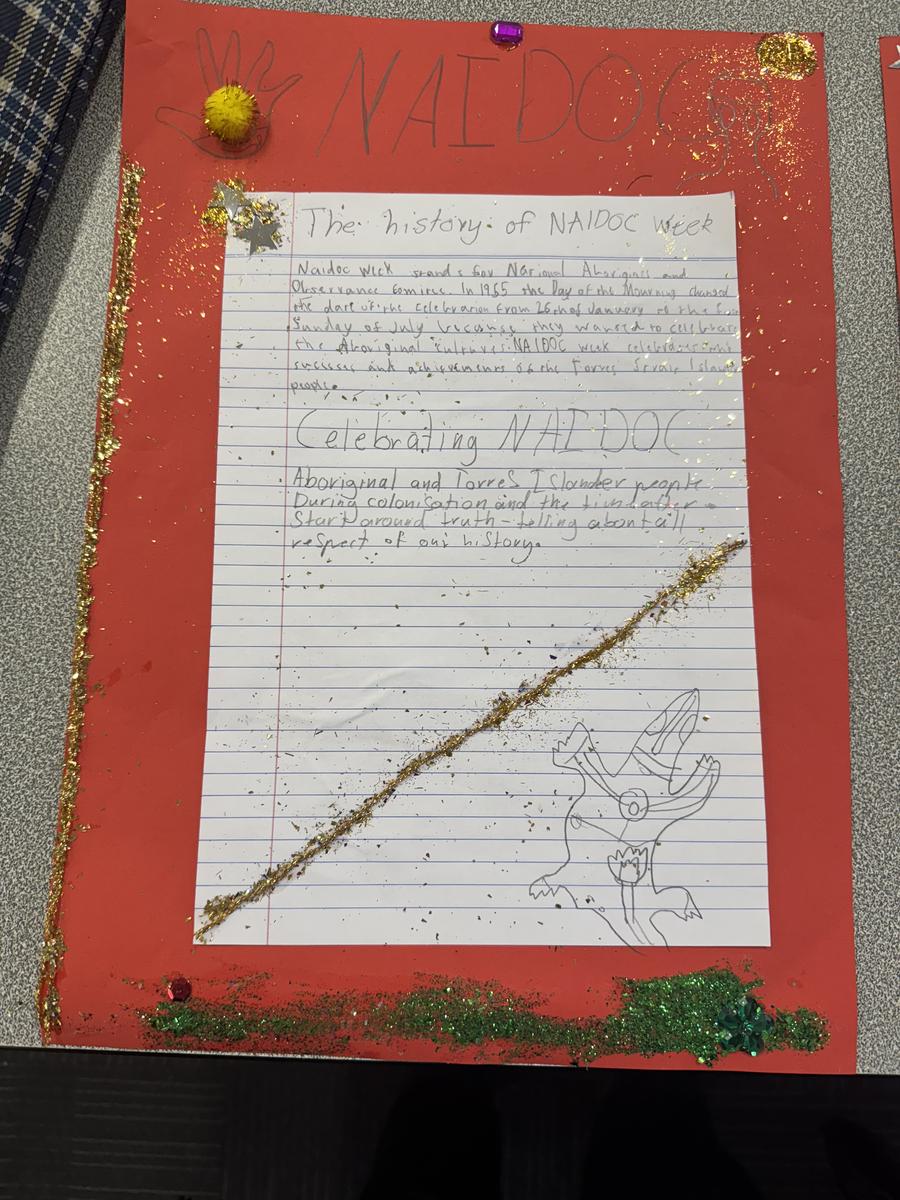 NAIDOC
The history of NAIDOC week
Naidoc Week stands for National Aborigines and
Observance comitee. In 1955 the Day of the Mourning changed
the date of the celebration from 26th of January to the
Sunday of July because they wanted to celebrate
the Aboriginal cultures. NAIDOC week celebrates
success and achievements of the Torres Strait Island
people.
Celebrating NAIDOC
Aboriginal and Torres Islander people
During colonisation and the time after -
Start around truth-telling about all
respect of our history.